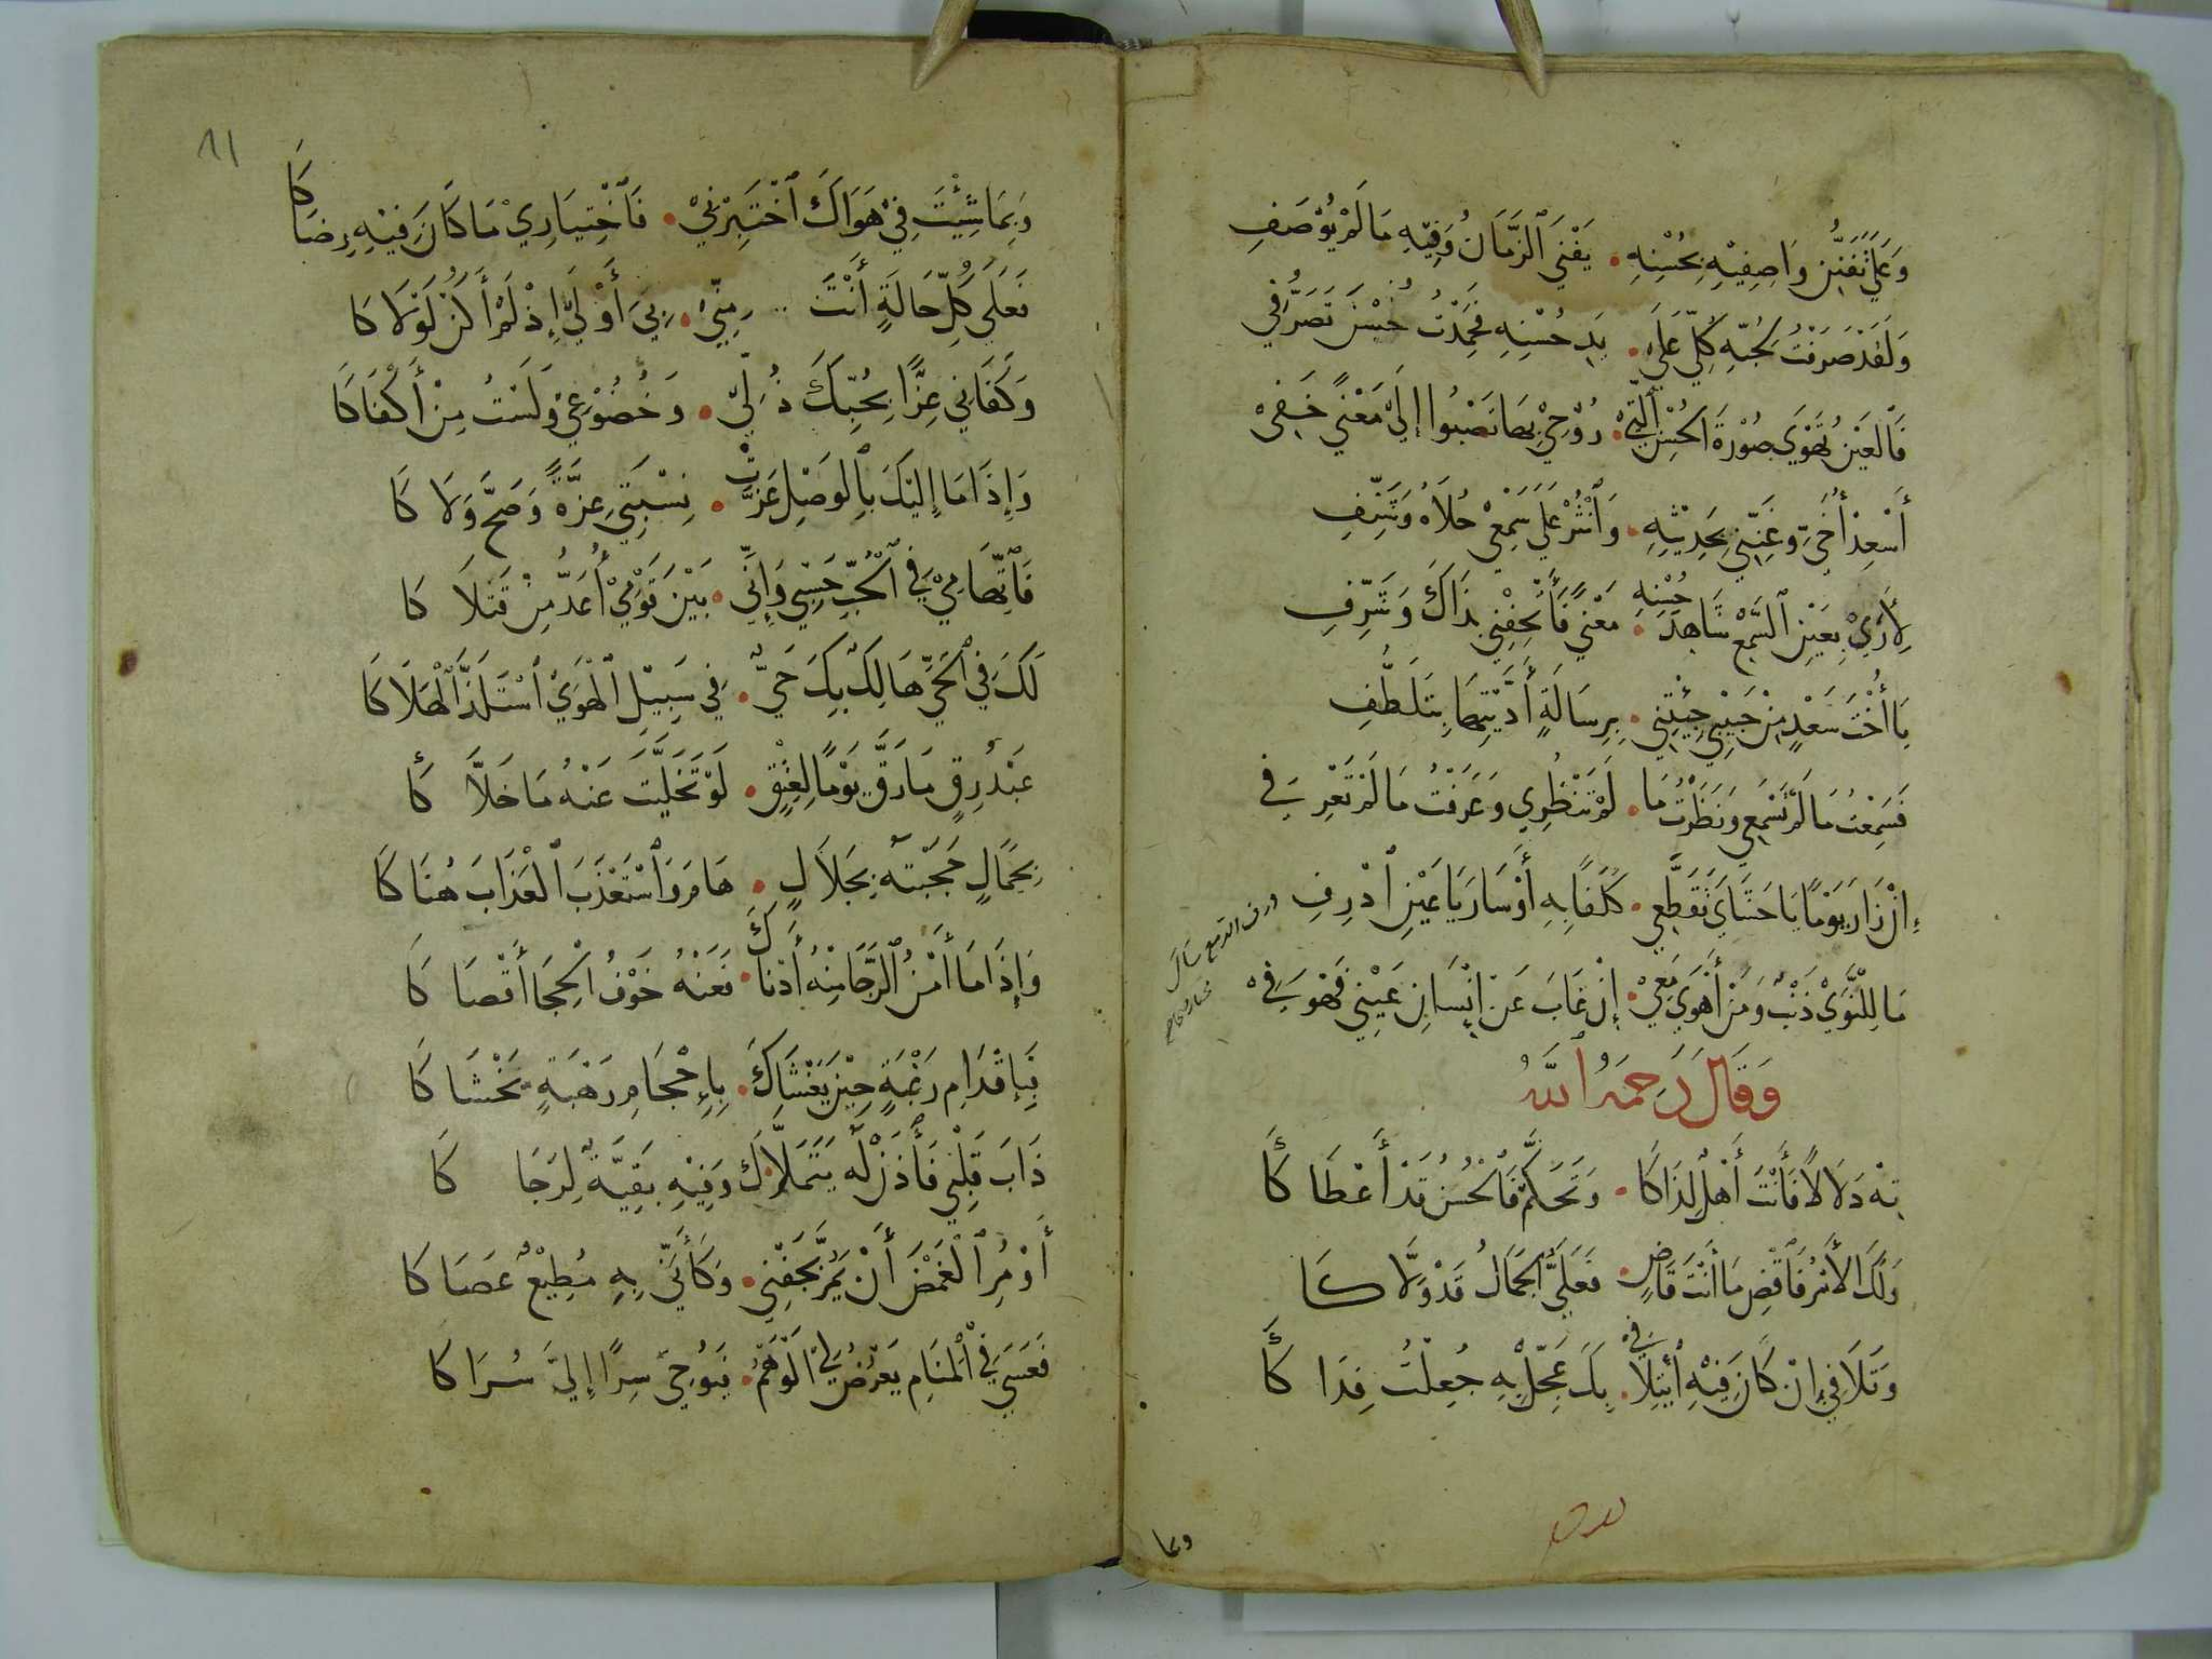 وَعَلَى تَفَنُّنِ وَاصِفِيْهِ بِحُسْنِهِ • يَفْنَى ٱلزَّمَانُ وَفِيْهِ مَا لَمْ يُوْصَفِ
وَلَقَدْ صَرَفْتُ لِحُبِّهِ كُلِّي عَلَى • يَدِ حُسْنِهِ فَحَمِدْتُ حُسْنَ تَصَرُّفِي
فَٱلْعَيْنُ تَهْوَى صُوْرَةَ ٱلْحُسْنِ ٱلَّتِي • رُوْحِيْ بِهَا تَصْبُوا إِلَى مَعْنًى خَفِي
أَسْعِدْ أُخَيَّ وَغَنِّنِي بِحَدِيْثِهِ • وَٱنْثُرْ عَلَى سَمْعِيْ حُلَاهُ وَشَنِّفِ
لِأَرَى بِعَيْنِ ٱلسَّمْعِ شَاهِدَ حُسْنِهِ • مَعْنًى فَأَتْحِفْنِي بِذَاكَ وَشَرِّفِ
يَا أُخْتَ سَعْدٍ مِنْ حَبِيْبِي جِئْتِنِي • بِرِسَالَةٍ أَدَّيْتِهَا بِتَلَطُّفِ
فَسَمِعْتُ مَا لَمْ تَسْمَعِي وَنَظَرْتُ مَا • لَمْ تَنْظُرِي وَعَرَفْتُ مَا لَمْ تَعْرِفِي
إِنْ زَارَ يَوْمًا يَا حَشَايَ تَقَطَّعِي • كَلَفًا بِهِ أَوْ سَارَ يَا عَيْنِ ٱذْرِفِ
ذرف الدمع سال
مَا لِلنَّوَى ذَنْبٌ وَمَنْ أَهْوَى مَعِيْ • إِنْ غَابَ عَنْ إِنْسَانِ عَيْنِي فَهْوَ فِي
وَقَالَ رَحِمَهُ ٱللَّهُ
تِهْ دَلَالًا فَأَنْتَ أَهْلٌ لِذَاكَا • وَتَحَكَّمْ فَٱلْحُسْنُ قَدْ أَعْطَاكَا
وَلَكَ ٱلْأَمْرُ فَٱقْضِ مَا أَنْتَ قَاضٍ • فَعَلَيَّ ٱلْجَمَالُ قَدْ وَلَّاكَا
وَتَلَافِي إِنْ كَانَ فِيْهِ ٱئْتِلَافِي • بِكَ عَجِّلْ بِهِ جُعِلْتُ فِدَاكَا
وبما
11
وَبِمَا شِئْتَ فِيْ هَوَاكَ ٱخْتَبِرْنِيْ • فَٱخْتِيَارِيْ مَا كَانَ فِيْهِ رِضَاكَا
فَعَلَى كُلِّ حَالَةٍ أَنْتَ مِنِّيْ • بِيَ أَوْلَى إِذْ لَمْ أَكُنْ لَوْلَاكَا
وَكَفَانِي عِزًّا بِحُبِّكَ ذُلِّيْ • وَخُضُوْعِيْ وَلَسْتُ مِنْ أَكْفَاكَا
وَإِذَا مَا إِلَيْكَ بِٱلْوَصْلِ عَزَّتْ • نِسْبَتِي عِزَّةً وَصَحَّ وَلَاكَا
فَٱتِّهَامِيْ فِي ٱلْحُبِّ حَسْبِي وَإِنِّي • بَيْنَ قَوْمِيْ أُعَدُّ مِنْ قَتْلَاكَا
لَكَ فِي ٱلْحَيِّ هَالِكٌ بِكَ حَيٌّ • فِي سَبِيْلِ ٱلْهَوَى ٱسْتَلَذَّ ٱلْهَلَاكَا
عَبْدُ رِقٍّ مَا رَقَّ يَوْمًا لِعِتْقٍ • لَوْ تَخَلَّيْتَ عَنْهُ مَا خَلَّاكَا
بِجَمَالٍ حَجَبْتَهُ بِجَلَالٍ • هَامَ وَٱسْتَعْذَبَ ٱلْعَذَابَ هُنَاكَا
وَإِذَا مَا أَمْنُ ٱلرَّجَا مِنْهُ أَدْنَاكَ • فَعَنْهُ خَوْفُ ٱلْحِجَا أَقْصَاكَا
فَبِإِقْدَامِ رَغْبَةٍ حِيْنَ يَغْشَاكَ • بِإِحْجَامِ رَهْبَةٍ يَخْشَاكَا
ذَابَ قَلْبِي فَأْذَنْ لَهُ يَتَمَنَّاكَ • وَفِيْهِ بَقِيَّةٌ لِرَجَاكَا
أَوْ مُرِ ٱلْغَمْضَ أَنْ يَمُرَّ بِجَفْنِي • وَكَأَنِّي بِهِ مُطِيْعٌ عَصَاكَا
فَعَسَى فِي ٱلْمَنَامِ يَعْرِضُ لِي ٱلْوَهْمُ • فَيُوْحِيْ سِرًّا إِلَيَّ سُرَاكَا